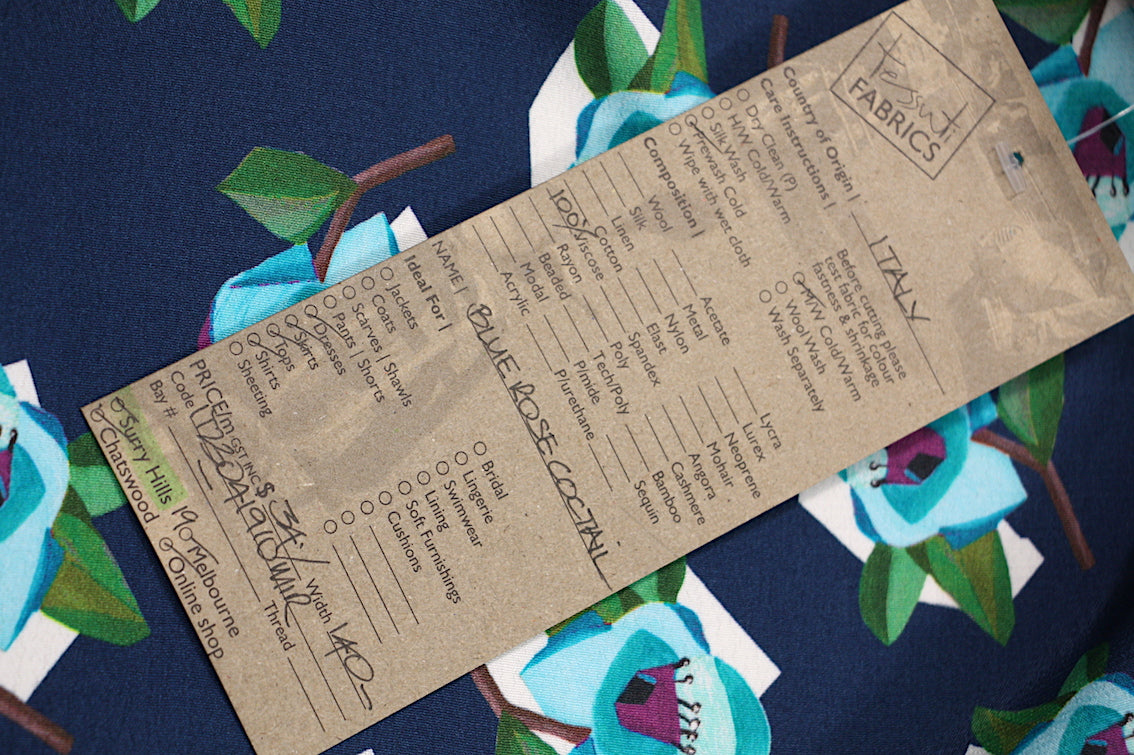 tessuti
FABRICS
Country of Origin | ITALY
Care Instructions |
Dry Clean (P)
H/W Cold/Warm
Silk Wash
Prewash Cold
Wipe with wet cloth
Before cutting please
test fabric for colour
fastness & shrinkage
M/W Cold/Warm
Wool Wash
Wash Separately
Composition |
Wool
Silk
Linen
Cotton
100% Viscose
Rayon
Beaded
Modal
Acrylic
Acetate
Metal
Nylon
Elast
Spandex
Poly
Tech/Poly
P/mide
P/urethane
Lycra
Lurex
Neoprene
Mohair
Angora
Cashmere
Bamboo
Sequin
NAME | BLUE ROSE COCTAIL
Ideal For |
Jackets
Coats
Scarves | Shawls
Pants | Shorts
Dresses
Skirts
Tops
Shirts
Sheeting
Bridal
Lingerie
Swimwear
Lining
Soft Furnishings
Cushions
PRICE/m GST INC $ Width 140
Code
Bay # Thread
Surry Hills
Chatswood
Melbourne
Online shop